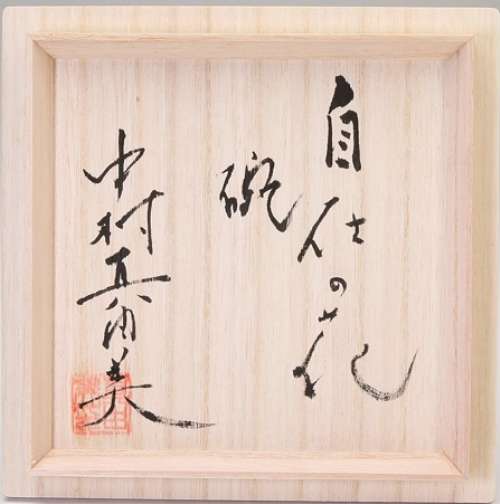 自在の花
碗
中村真由美